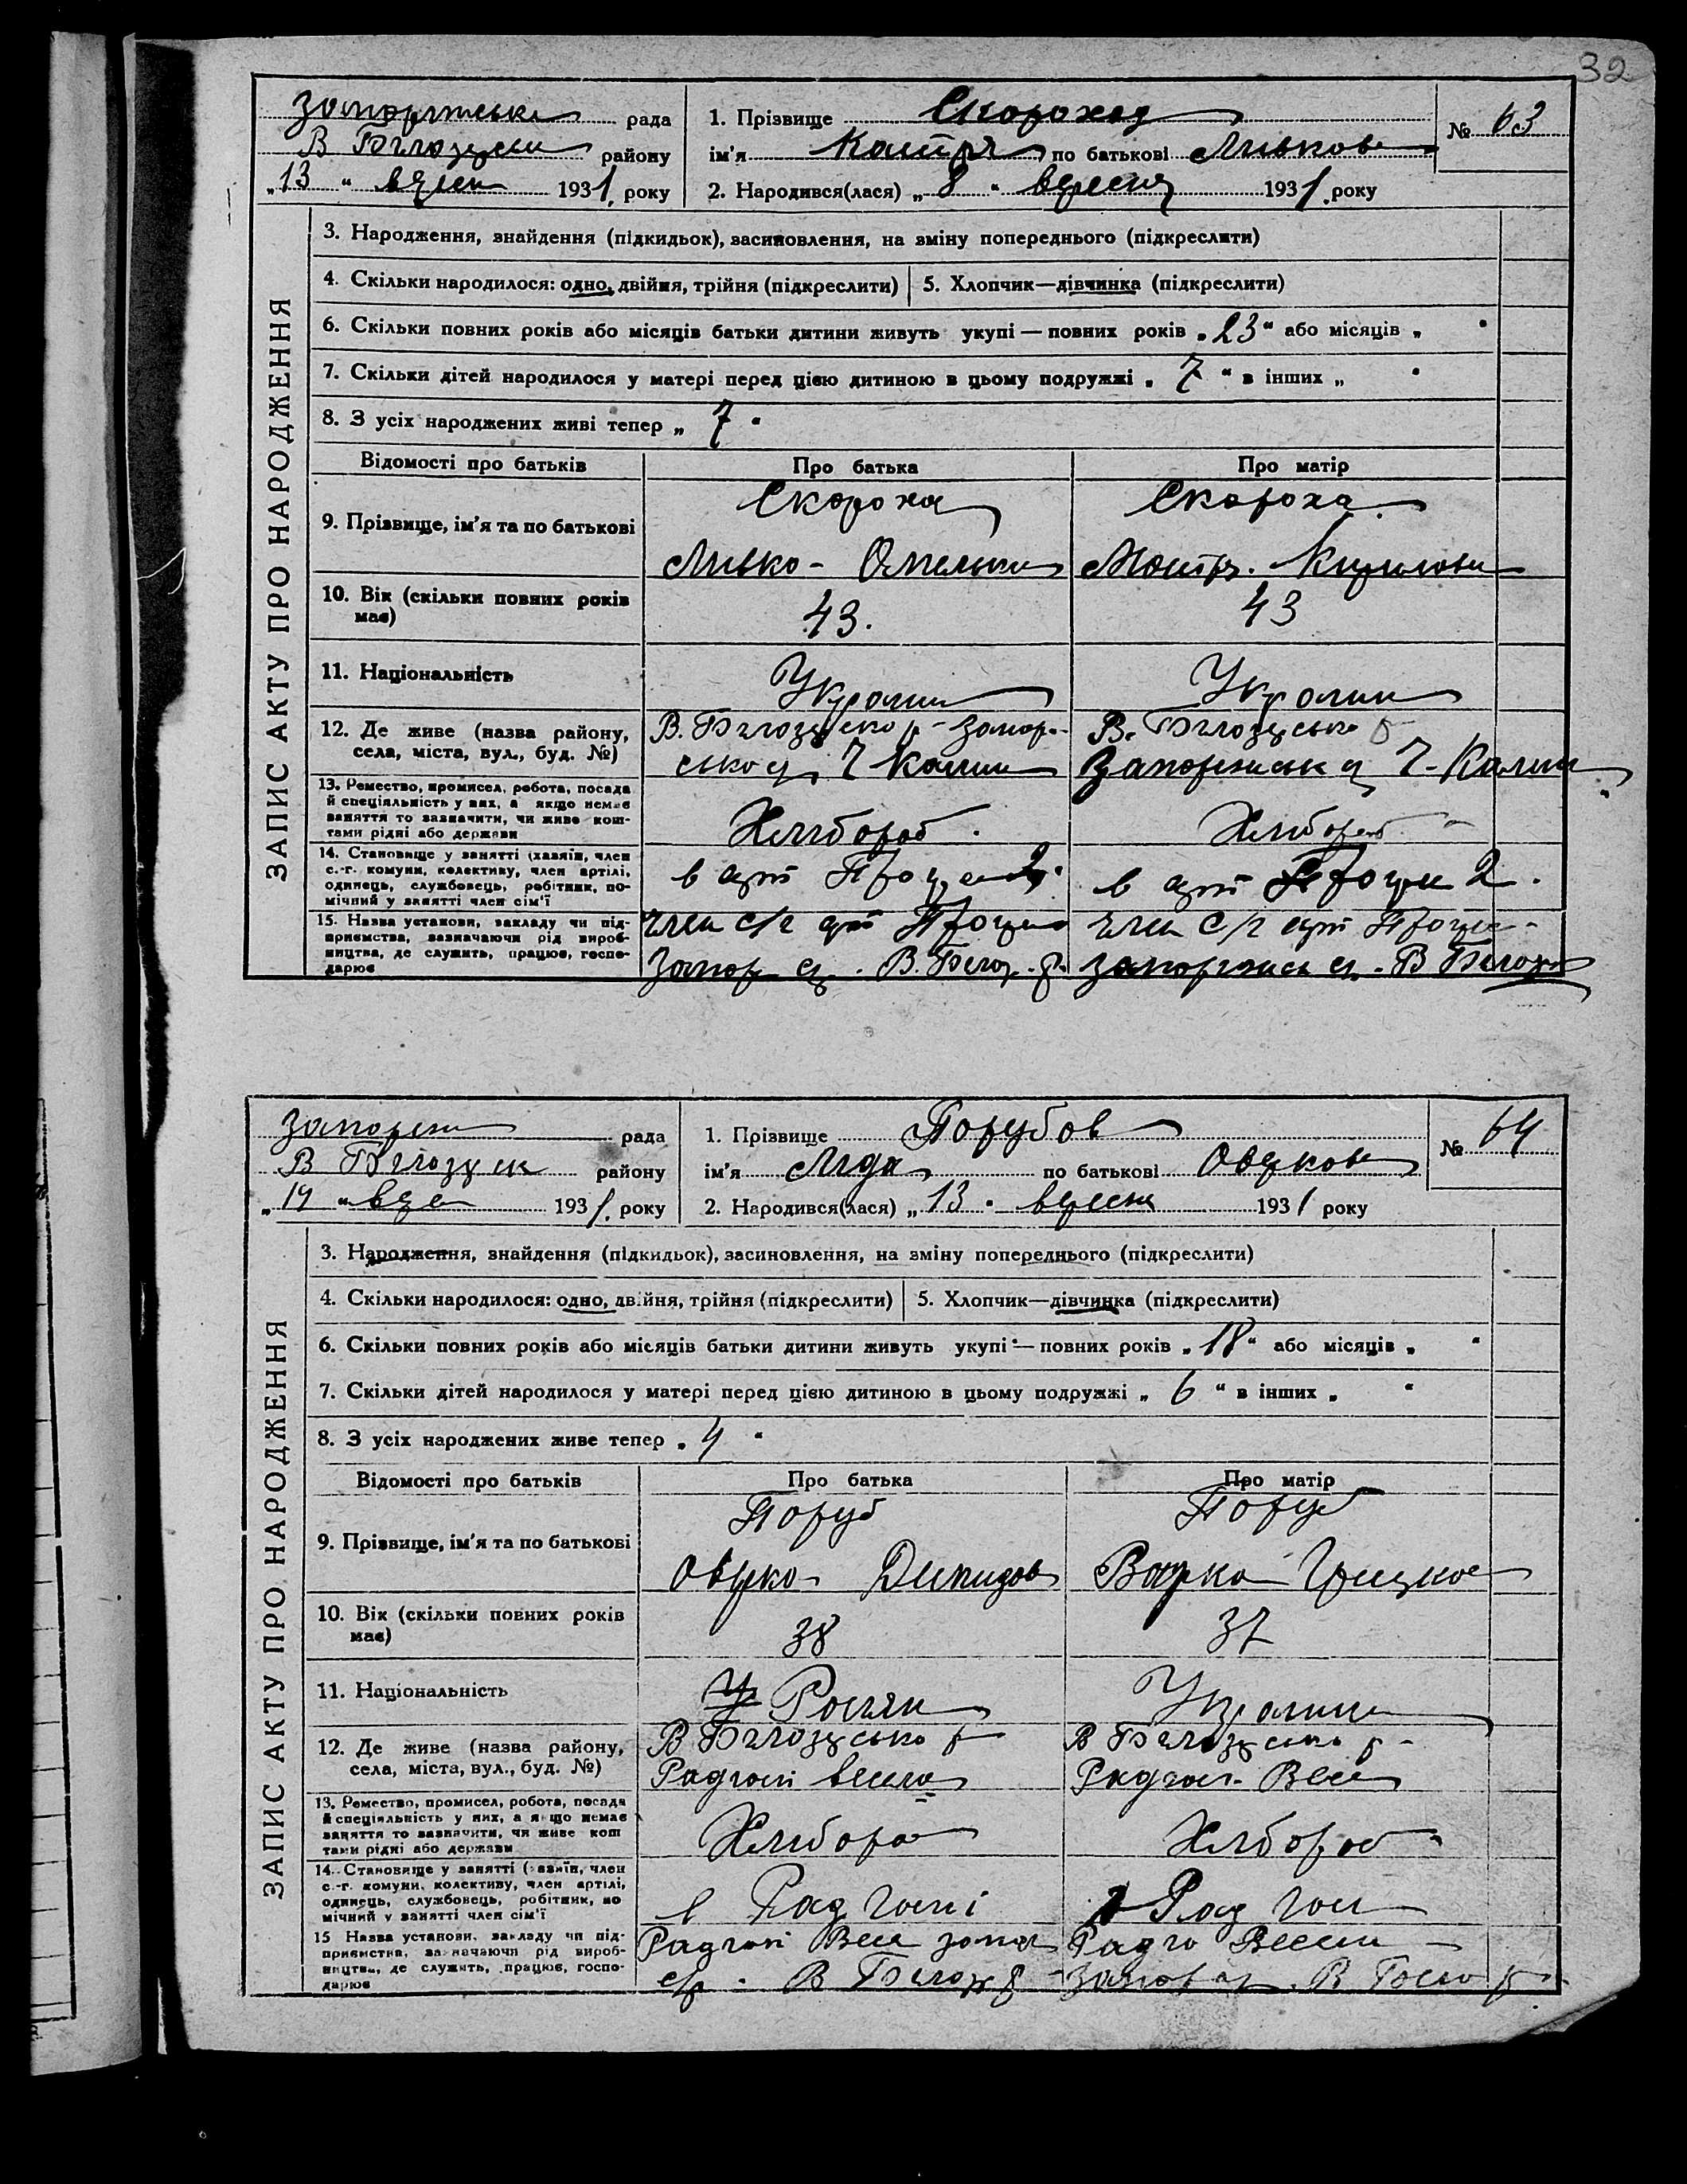 32
Запоріжська рада
1. Прізвище Скороход
№ 63
В Білозерськ району
ім'я Катря по батькові Ливкова
„13“ верес 1931 року
2. Народився(лася) „8“ вересня 1931 року
ЗАПИС АКТУ ПРО НАРОДЖЕННЯ
3. Народження, знайдення (підкидьок), засиновлення, на зміну попереднього (підкреслити)
4. Скільки народилося: одно, двійня, трійня (підкреслити)
5. Хлопчик—дівчинка (підкреслити)
6. Скільки повних років або місяців батьки дитини живуть укупі — повних років „23“ або місяців „ “
7. Скільки дітей народилося у матері перед цією дитиною в цьому подружжі „7“ в інших „ “
8. З усіх народжених живі тепер „7“
Відомості про батьків
Про батька
Про матір
9. Прізвище, ім'я та по батькові
Скорохо
Ливко- Омельков
Скороха
Кирилов
10. Вік (скільки повних років має)
43.
43
11. Національність
Украин
Украин
12. Де живе (назва району, села, міста, вул., буд. №)
В. Білозерсько р- Запор-
сько с
В. Білозерсько
Запоріжськ с
13. Ремество, промисел, робота, посада
й спеціяльність у них, а якщо немає
заняття то зазначити, чи живе кош-
тами рідні або держави
Хлибороб
Хлибороб
14. Становище у занятті (хазяїн, член
с.-г. комуни, колективу, член артілі,
одинець, службовець, робітник, по-
мічний у занятті член сім'ї
в арт
в арт
15. Назва установи, закладу чи під-
приємства, зазначаючи рід вироб-
ництва, де служить, працює, госпо-
дарює
член с/г арт
Запор с. В. Білоз. р.
член с/г арт
Запоріжськ с. В Білоз
Запоріж рада
1. Прізвище Порубов
№ 64
В Білозерск району
ім'я Лида по батькові Оверков
„14“ вере 1931 року
2. Народився(лася) „13“ вересня 1931 року
ЗАПИС АКТУ ПРО НАРОДЖЕННЯ
3. Народження, знайдення (підкидьок), засиновлення, на зміну попереднього (підкреслити)
4. Скільки народилося: одно, двійня, трійня (підкреслити)
5. Хлопчик—дівчинка (підкреслити)
6. Скільки повних років або місяців батьки дитини живуть укупі — повних років „18“ або місяців „ “
7. Скільки дітей народилося у матері перед цією дитиною в цьому подружжі „6“ в інших „ “
8. З усіх народжених живе тепер „4“
Відомості про батьків
Про батька
Про матір
9. Прізвище, ім'я та по батькові
Поруб
Оверко Демидов
Поруб
Варка Грицков
10. Вік (скільки повних років має)
38
37
11. Національність
Росіян
Украин
12. Де живе (назва району, села, міста, вул., буд. №)
В Білозерсько р
Радгосп весела
В Білозерсько р-
Радгосп Весе
13. Ремество, промисел, робота, посада
й спеціяльність у них, а якщо немає
заняття то зазначити, чи живе кош
тами рідні або держави
Хлибороб
Хлибороб
14. Становище у занятті (хазяїн, член
с.-г. комуни, колективу, член артілі,
одинець, службовець, робітник, по
мічний у занятті член сім'ї
в Рад госпі
в Рад госп
15 Назва установи, закладу чи під-
приємства, зазначаючи рід вироб-
ництва, де служить, працює, госпо-
дарює
Радгосп Весе запор
с/р. В Білоз р
Радго Весели
В Біло р